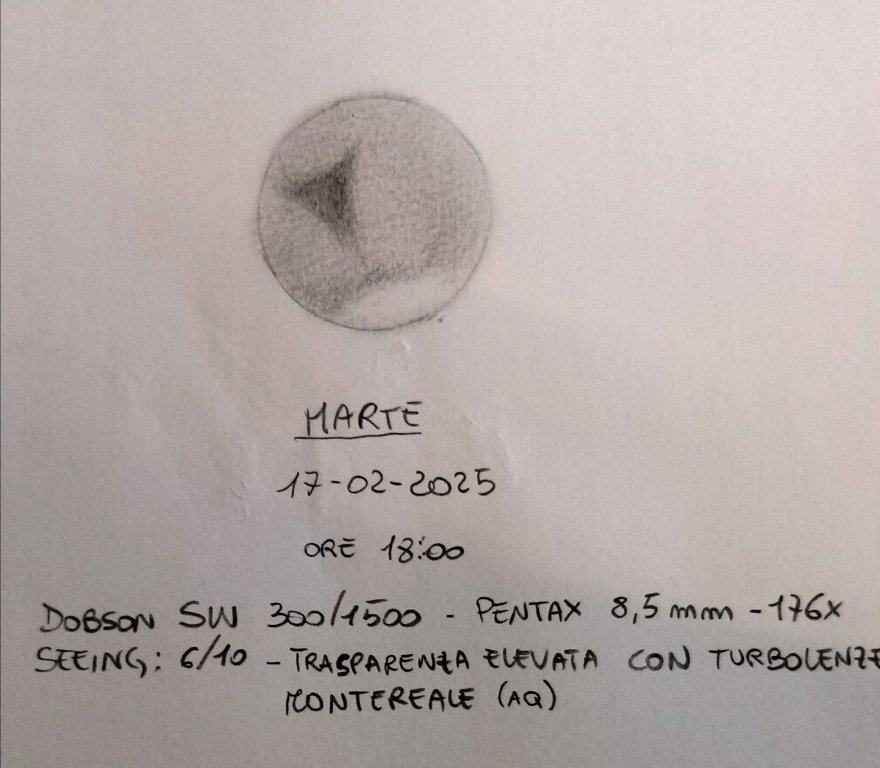 MARTE
17-02-2025
ORE 18:00
DOBSON SW 300/1500 - PENTAX 8,5 mm - 176X
SEEING: 6/10 - TRASPARENZA ELEVATA CON TURBOLENZE
MONTEREALE (AQ)